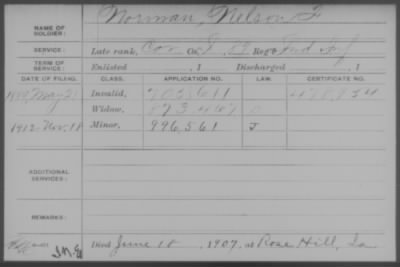 NAME OF SOLDIER: Norman, Nelson F
SERVICE: Late rank, Cor Co. I, Reg't Ind Inf
TERM OF SERVICE: Enlisted , 1 Discharged , 1
DATE OF FILING. CLASS. APPLICATION NO. LAW. CERTIFICATE NO.
May 21 Invalid, 703,611
Widow,
1912-Nov. 18 Minor, 996,561 J
ADDITIONAL SERVICES:
REMARKS:
Died June 18, 1907, at Rose Hill, Ia